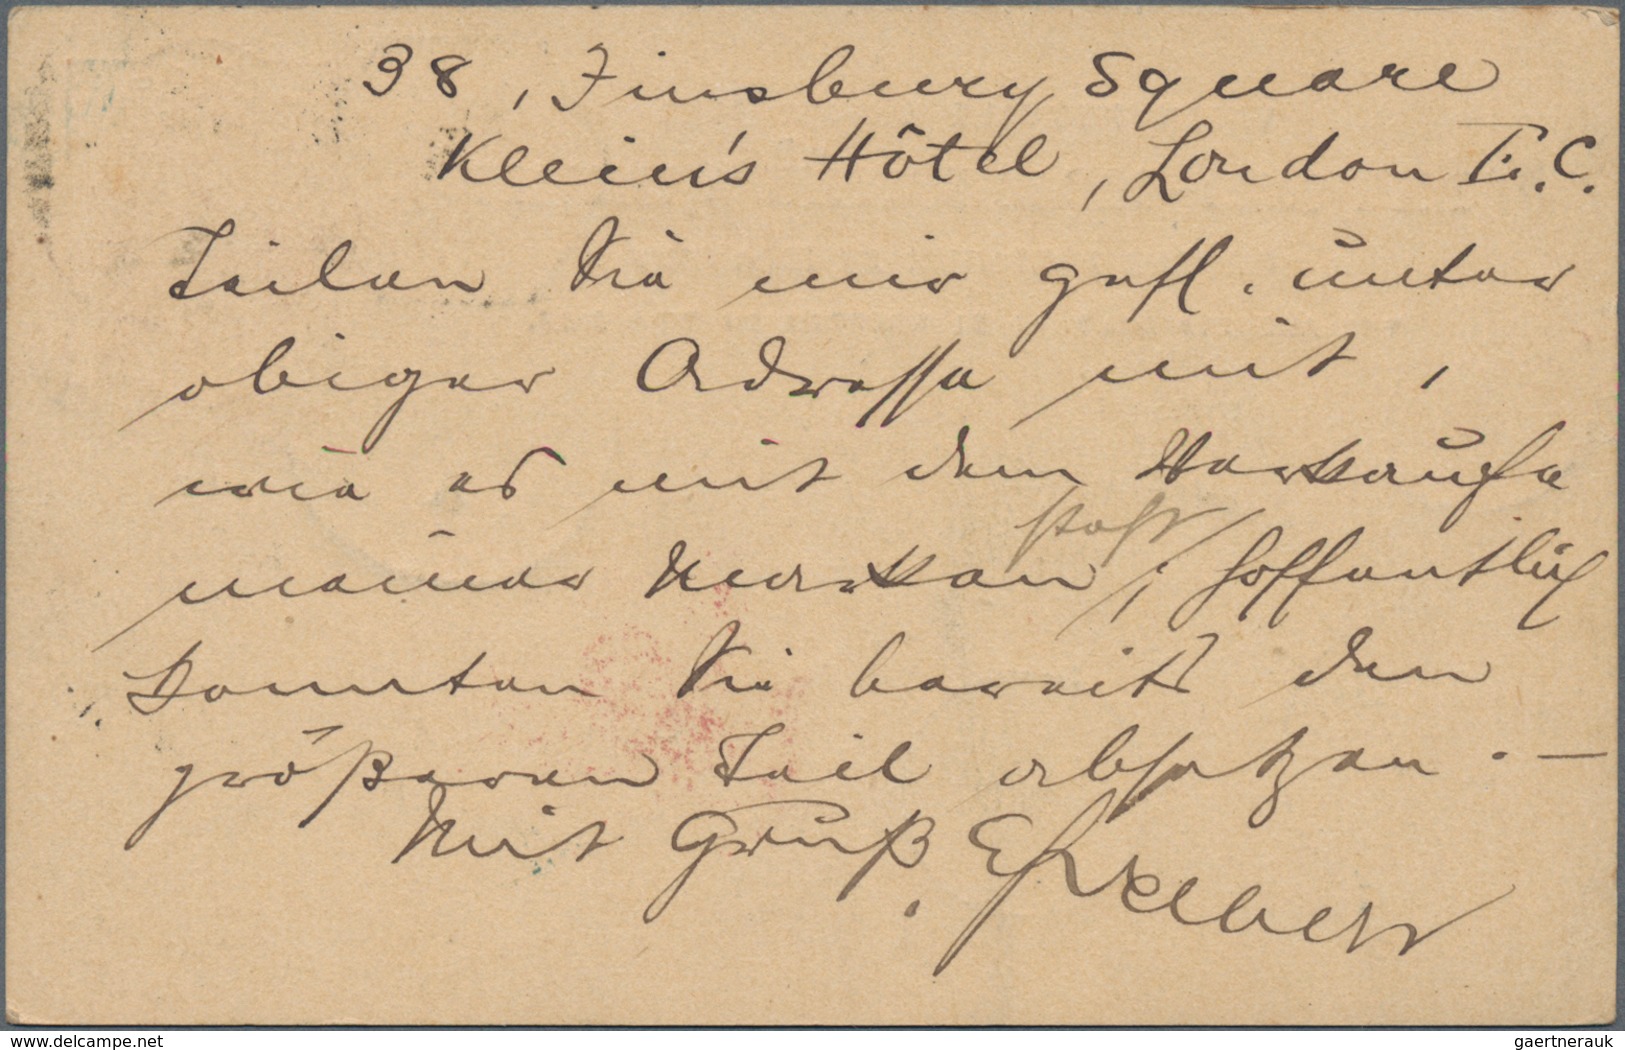 38, Finsbury Square
Klein's Hôtel, London E.C.
Teilen Sie mir gefl. unter
obiger Adresse mit,
wie es mit dem Verkaufe
meiner Marken steht; hoffentlich
konnten Sie bereits den
größeren Teil absetzen. —
Mit Gruß.
www.delcampe.net
gaertnerauk